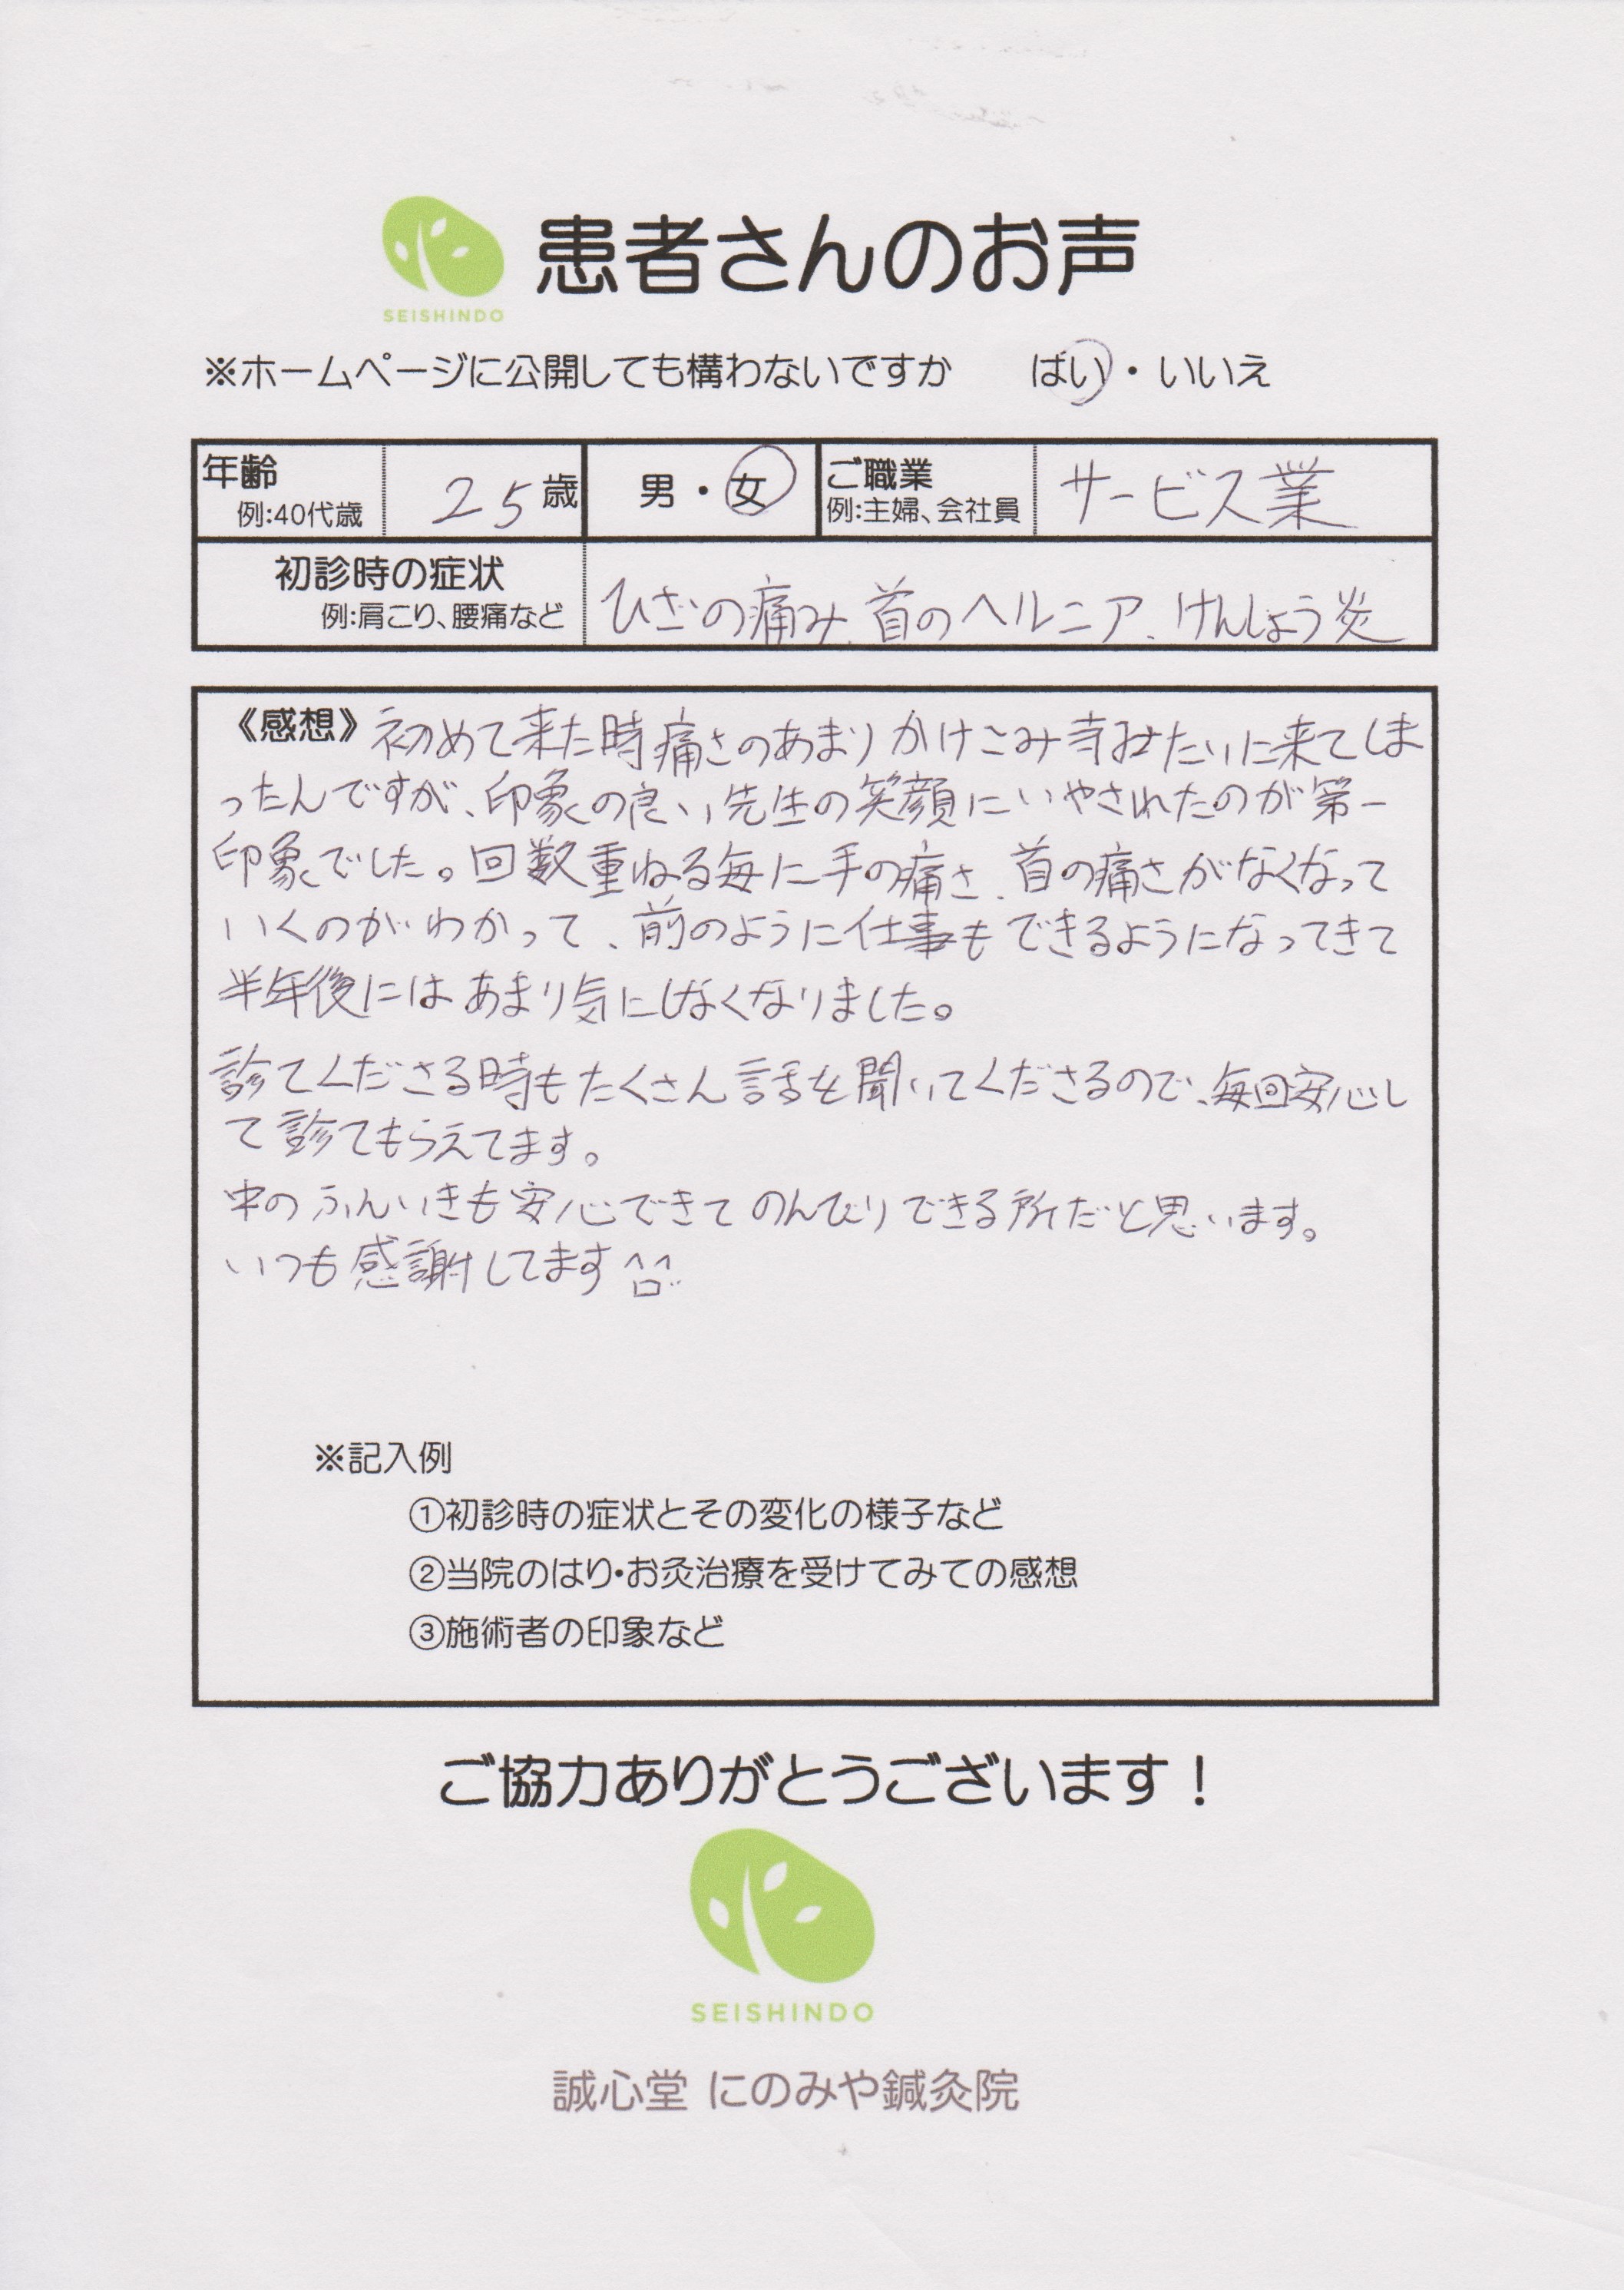 患者さんのお声
SEISHINDO
※ホームページに公開しても構わないですか はい・いいえ
年齢 25歳 男・女 ご職業 サービス業
例:40代歳 例:主婦、会社員
初診時の症状 ひざの痛み、首のヘルニア、けんしょう炎
例:肩こり、腰痛など
《感想》初めて来た時痛さのあまりかけこみ寺みたいに来てしま
ったんですが、印象の良い先生の笑顔にいやされたのが第一
印象でした。回数重ねる毎に手の痛さ、首の痛さがなくなって
いくのがわかって、前のように仕事もできるようになってきて
半年後にはあまり気にしなくなりました。
診てくださる時もたくさん話を聞いてくださるので、毎回安心し
て診てもらえてます。
中のふんいきも安心できてのんびりできる所だと思います。
いつも感謝してます^ロ^
※記入例
①初診時の症状とその変化の様子など
②当院のはり・お灸治療を受けてみての感想
③施術者の印象など
ご協力ありがとうございます！
SEISHINDO
誠心堂 にのみや鍼灸院